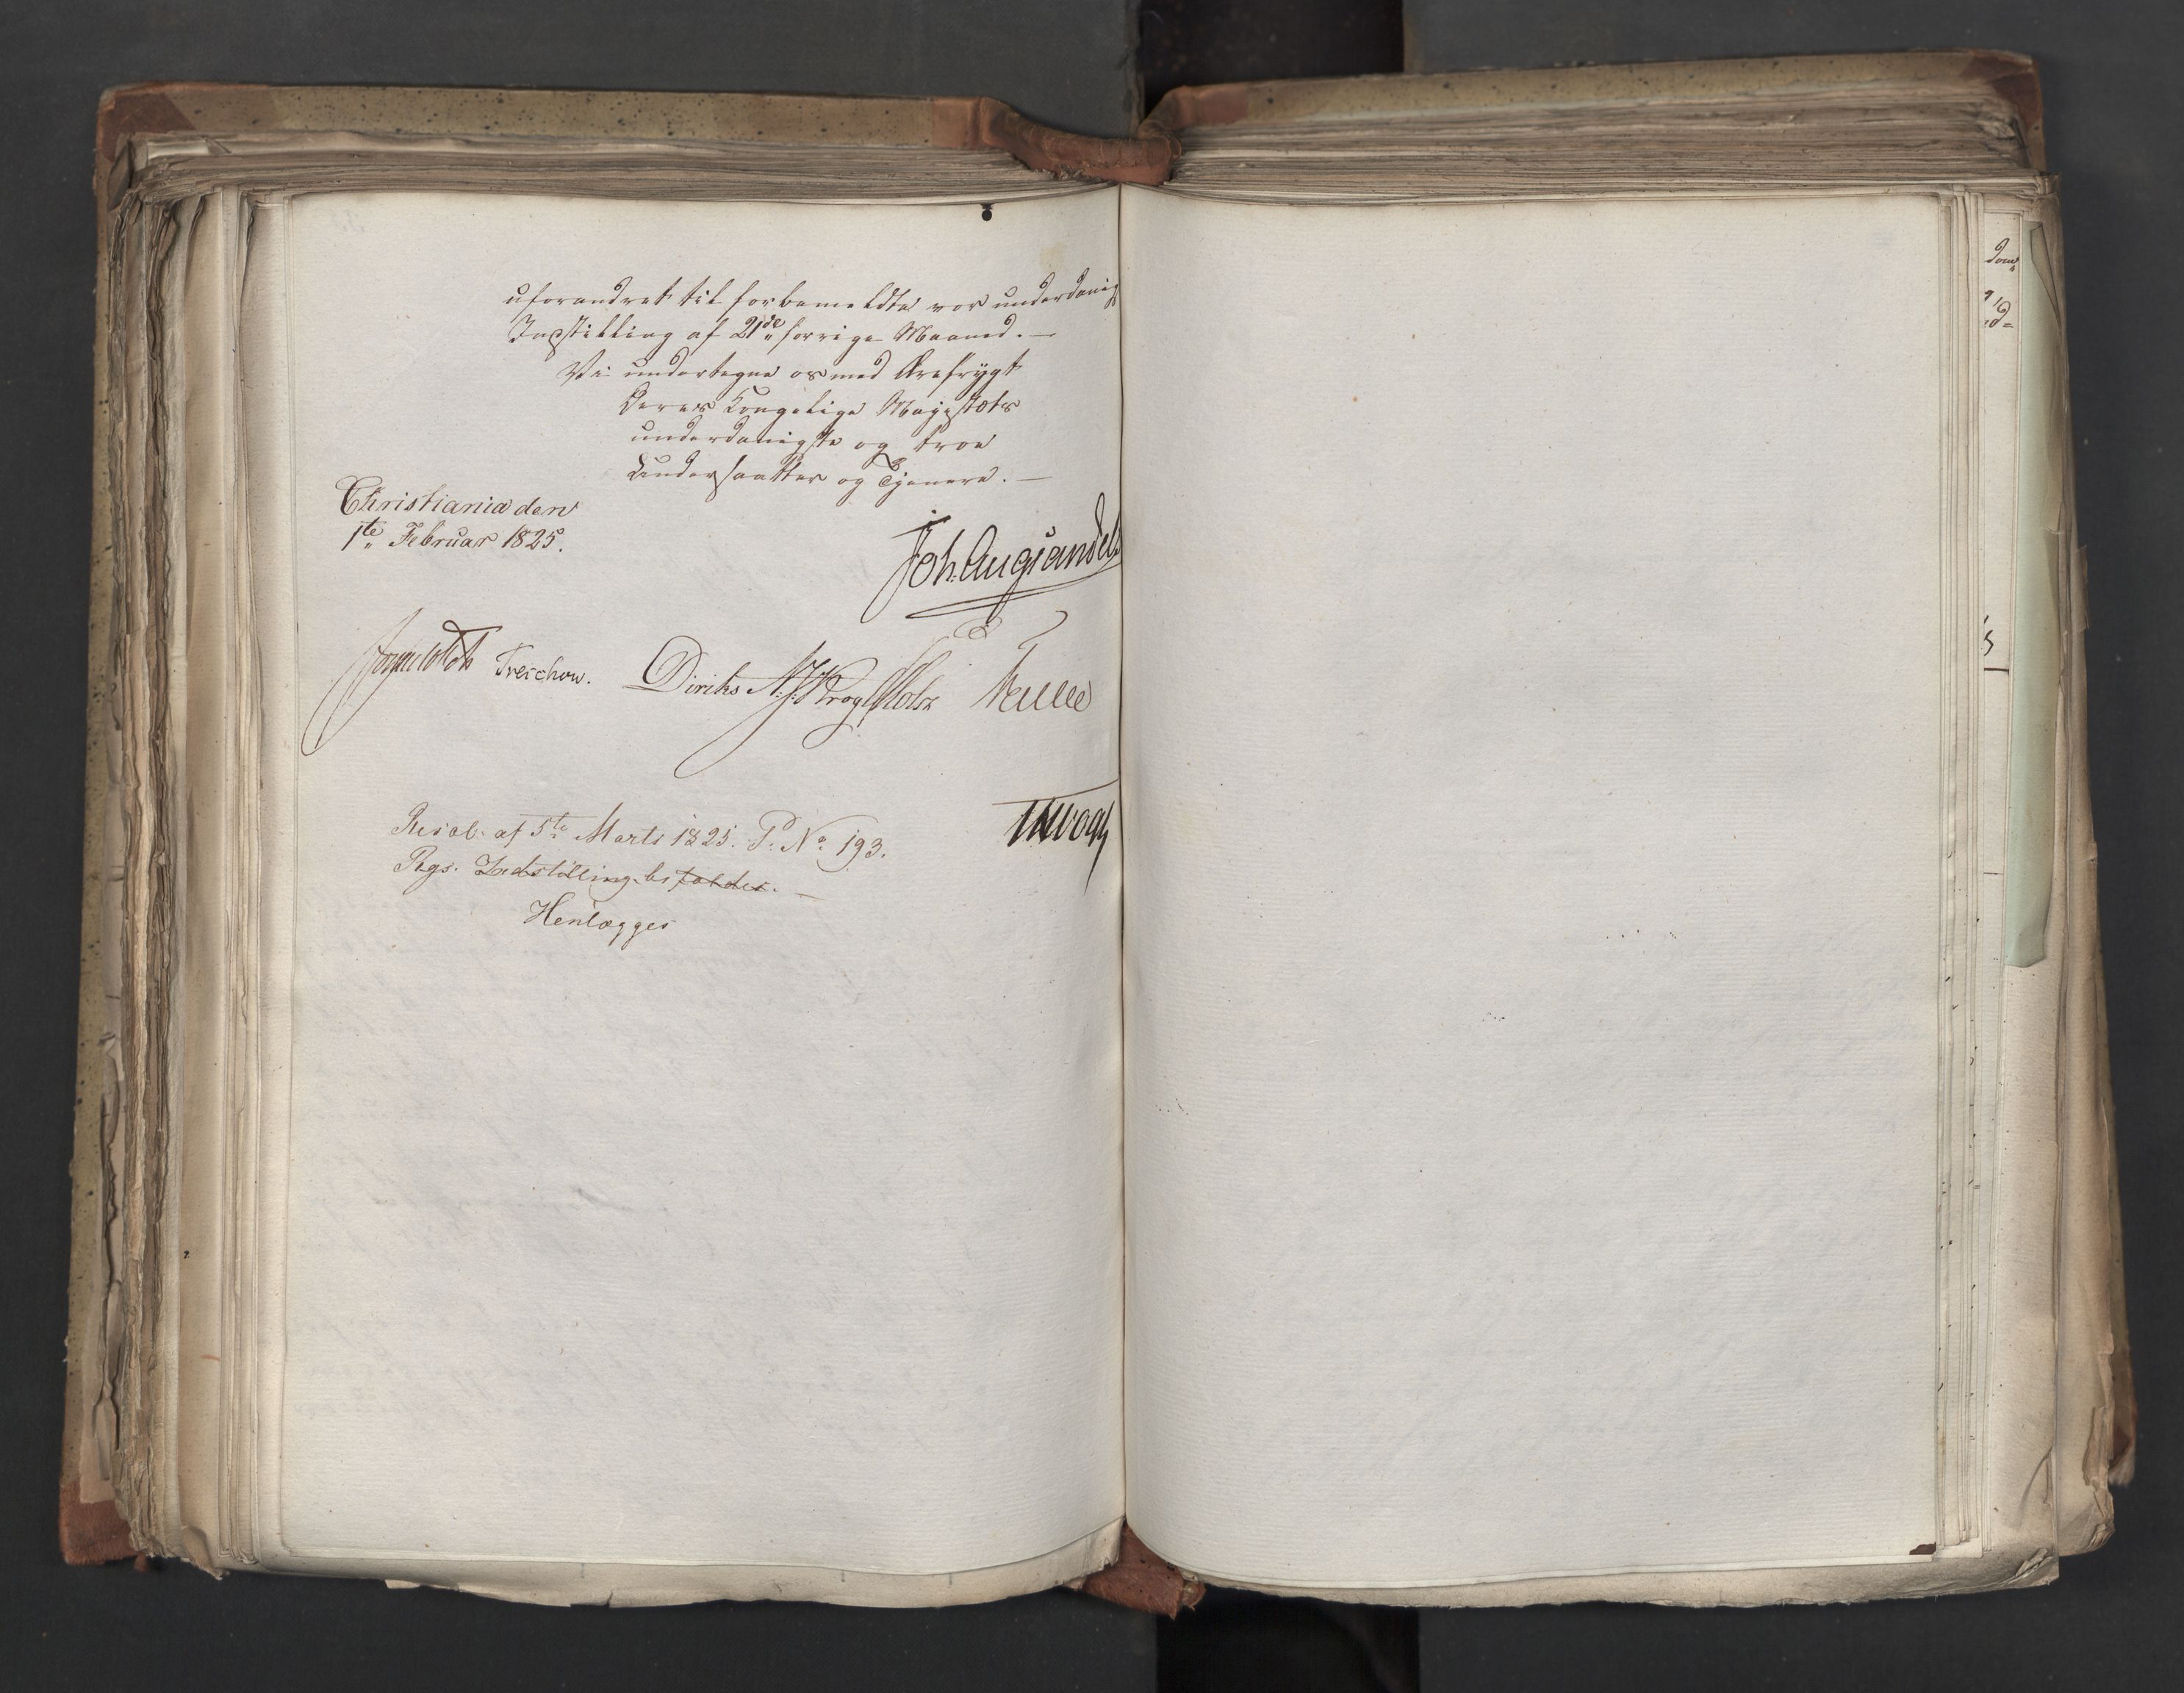 uforandret til forbemeldte vor underdanig
Indstilling af 21de forrige Maaned. —
Vi undertegne os med Ærefrygt
Deres Kongelige Majestæts
underdanigste og troe
Undersaatter og Tjenere. —
Christiania den
1te Februar 1825.
Joh: Aug: Sandels
Sommerhielm Treschow. Diriks N. J. Krog Holst Fasting
JHVogt
Resol: af 5te Marts 1825. P. No 193.
Rgs. Indstilling bifaldes. —
Henlægges